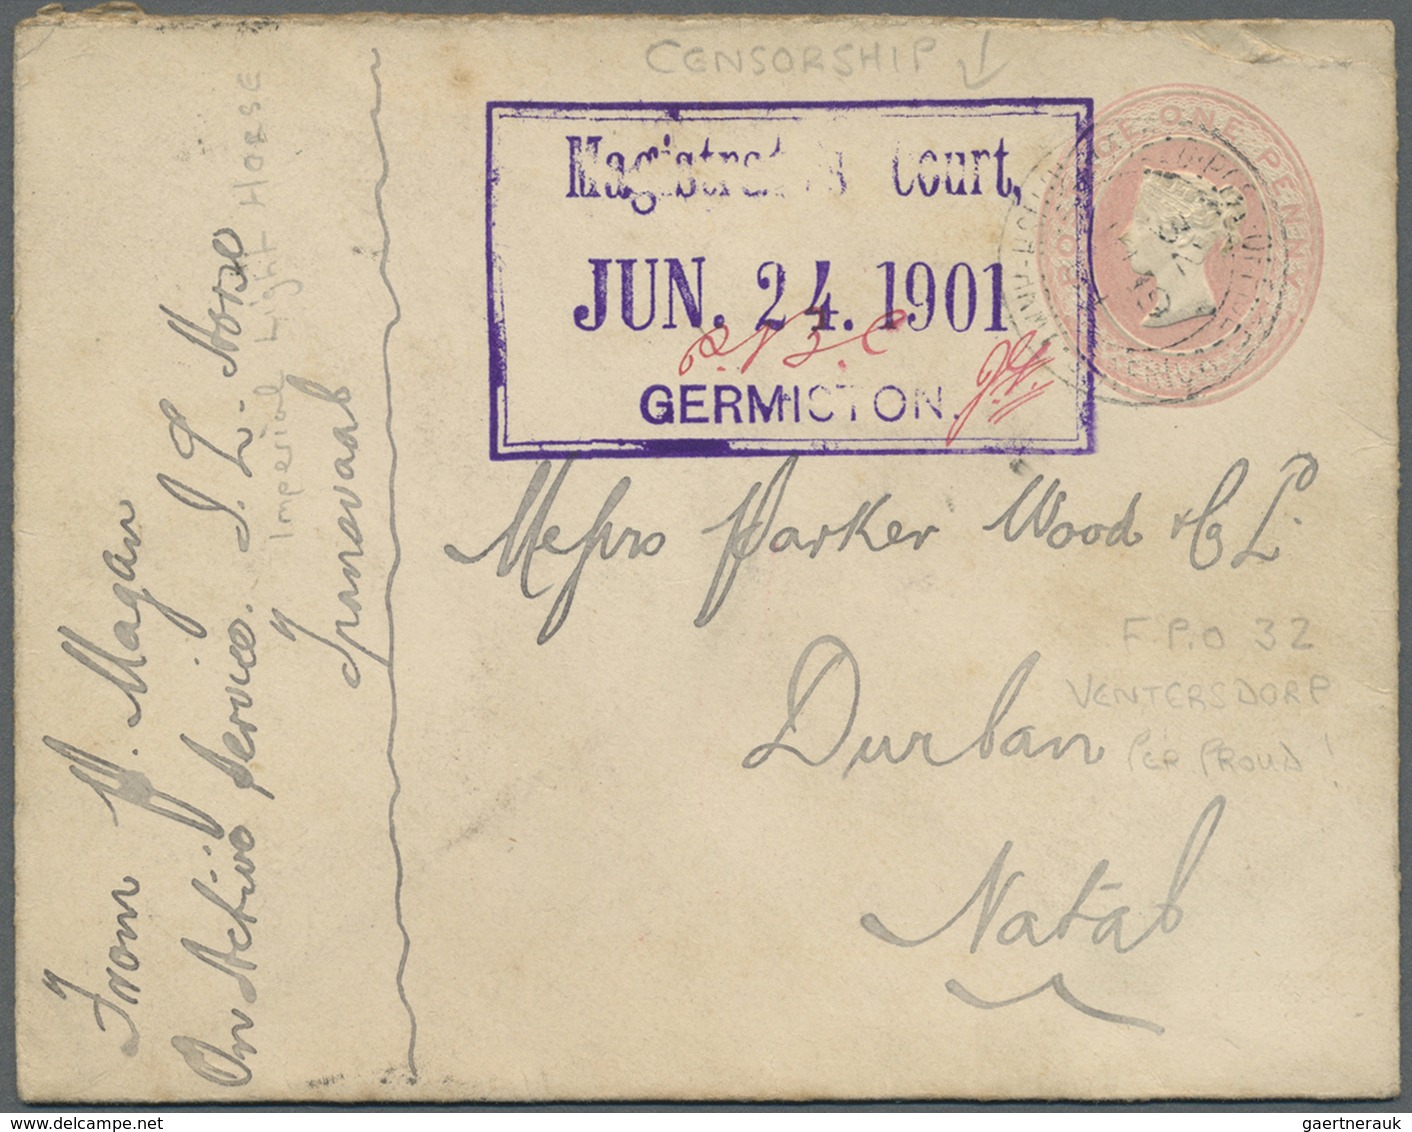 CENSORSHIP
Magistrate's Court,
JUN. 24. 1901
GERMISTON.
POSTAGE ONE PENNY
Messrs Parker Wood & Co Ld.
Durban
Natal
F.P.O 32
VENTERSDORP
PER PROUD
From P. Magan
On Active Service. I. L. Horse
Imperial Light HORSE
Transvaal
gaertnerauk